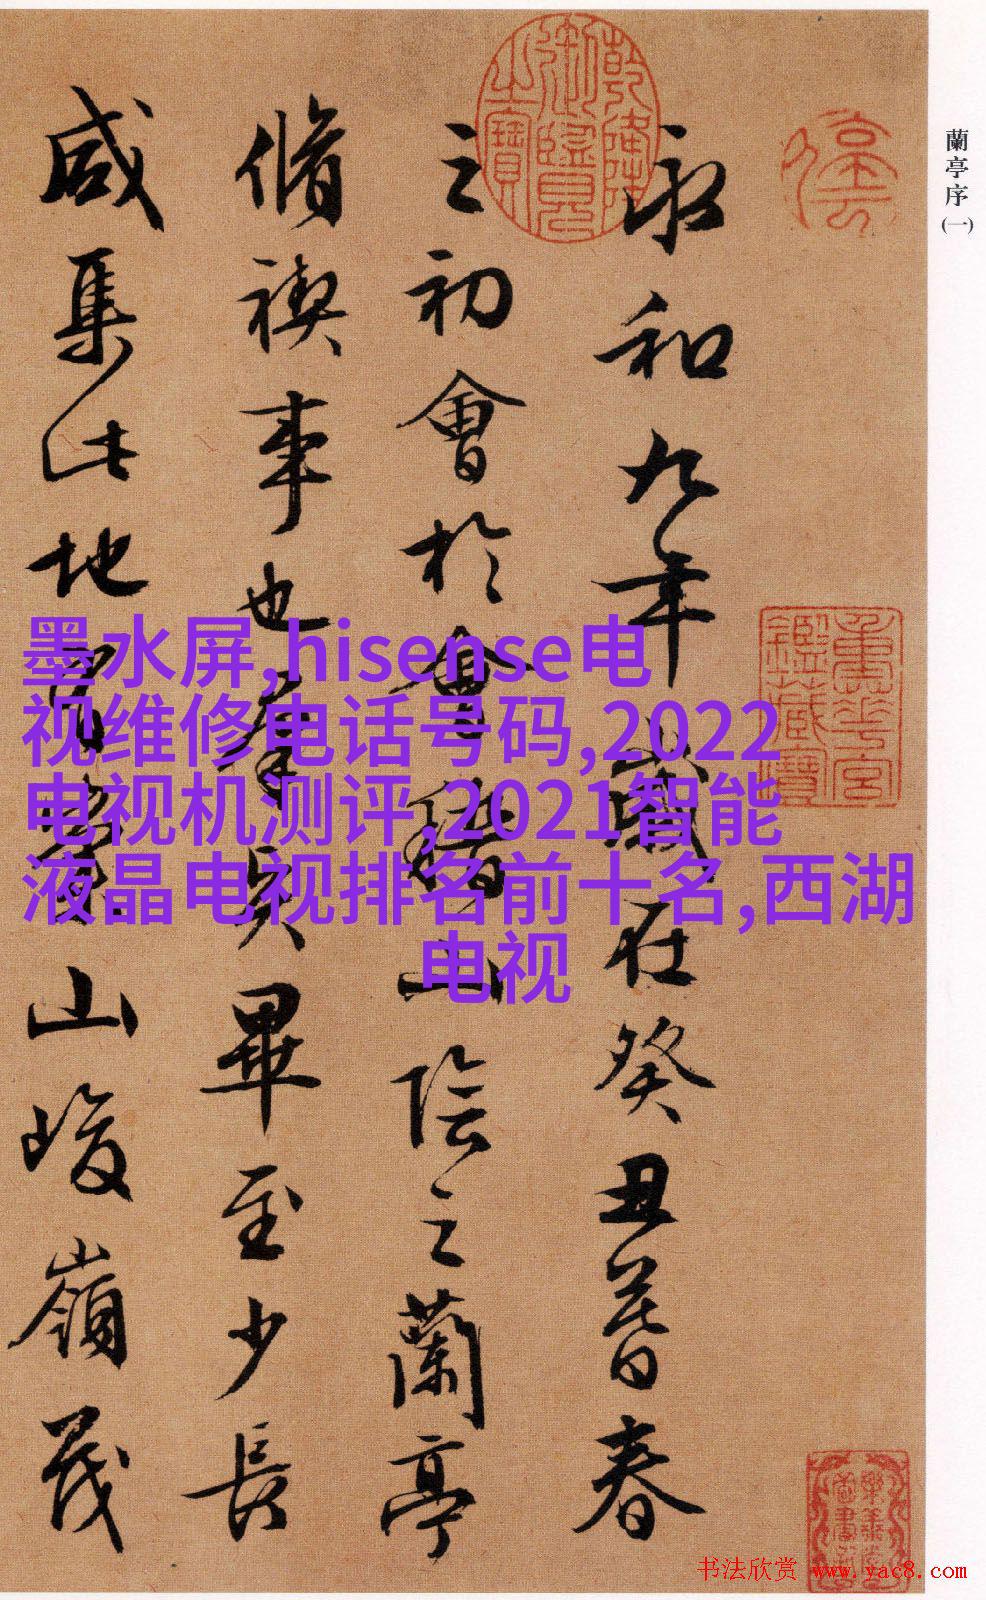 蘭亭序(一)
永和九年歲在癸丑暮春
之初會於會稽山陰之蘭亭
脩禊事也羣賢畢至少長
咸集此地有崇山峻嶺茂
乾隆御覽之寶
重華宮鑑藏寶
墨水屏,hisense电
视维修电话号码,2022
电视机测评,2021智能
液晶电视排名前十名,西湖
电视
书法欣赏 www.yac8.com